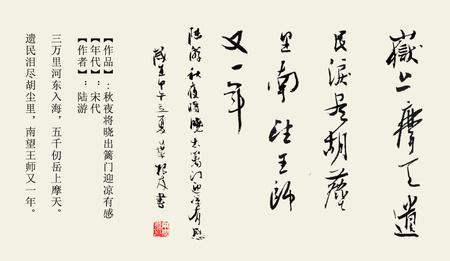 嶽上摩天遺
民淚盡胡塵
里南望王師
又一年
陸游秋夜將曉出籬門迎涼有感
甲午之夏葉根友書
【作品】:秋夜将晓出篱门迎凉有感
【年代】:宋代
【作者】:陆游
三万里河东入海，五千仞岳上摩天。
遗民泪尽胡尘里，南望王师又一年。